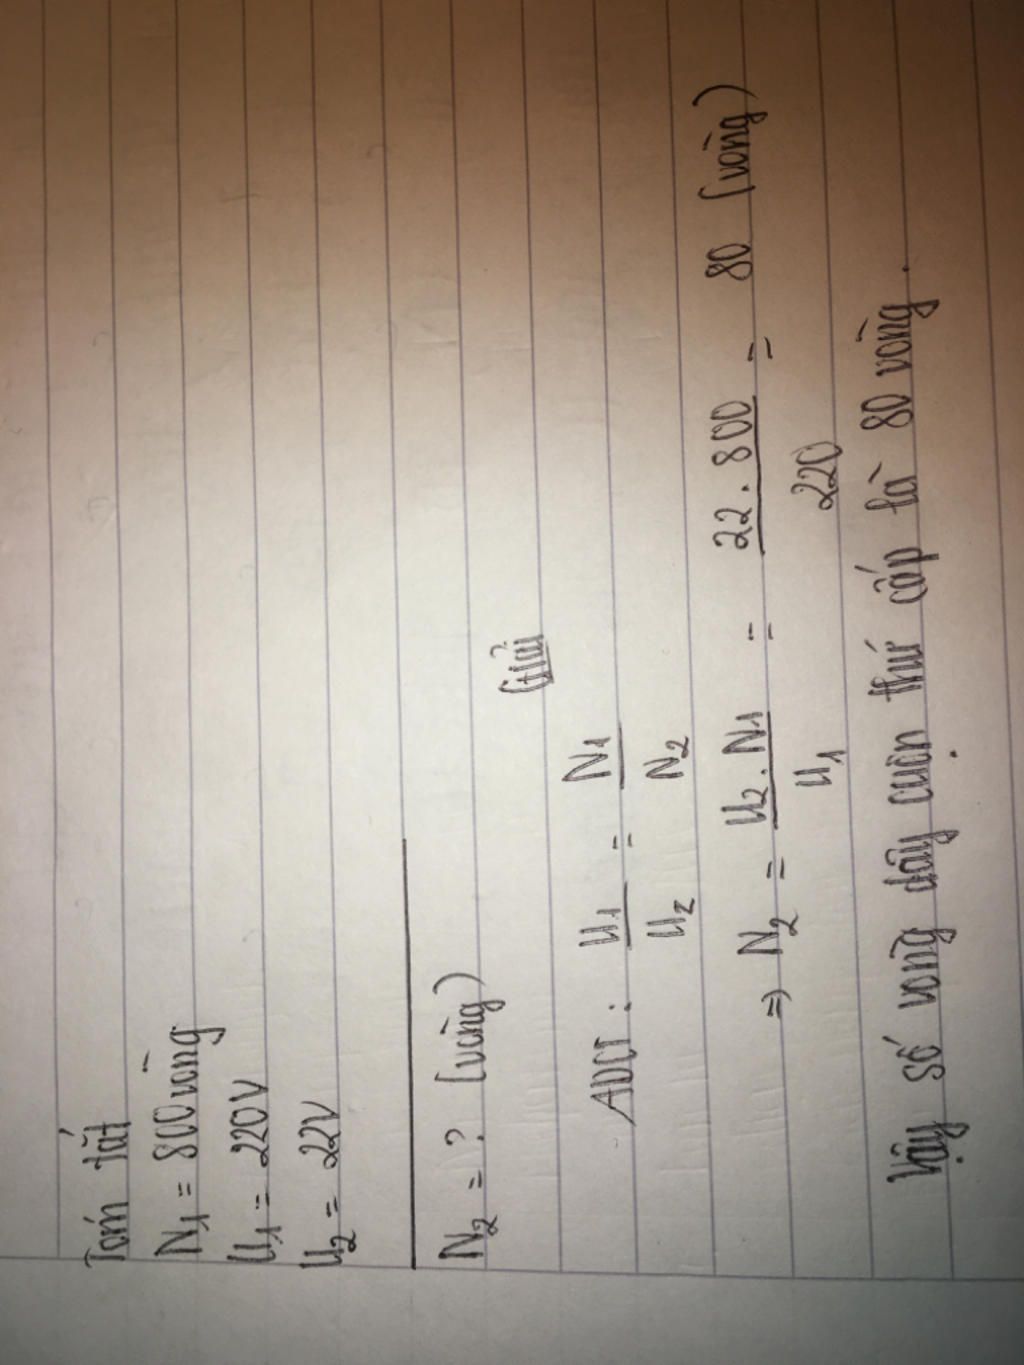 Tóm tắt
N1 = 800 vòng
U1 = 220V
U2 = 22V
N2 = ? (vòng)
Giải
ADCT : U1/U2 = N1/N2
=> N2 = U2.N1/U1 = 22.800/220 = 80 (vòng)
Vậy số vòng dây cuộn thứ cấp là 80 vòng.